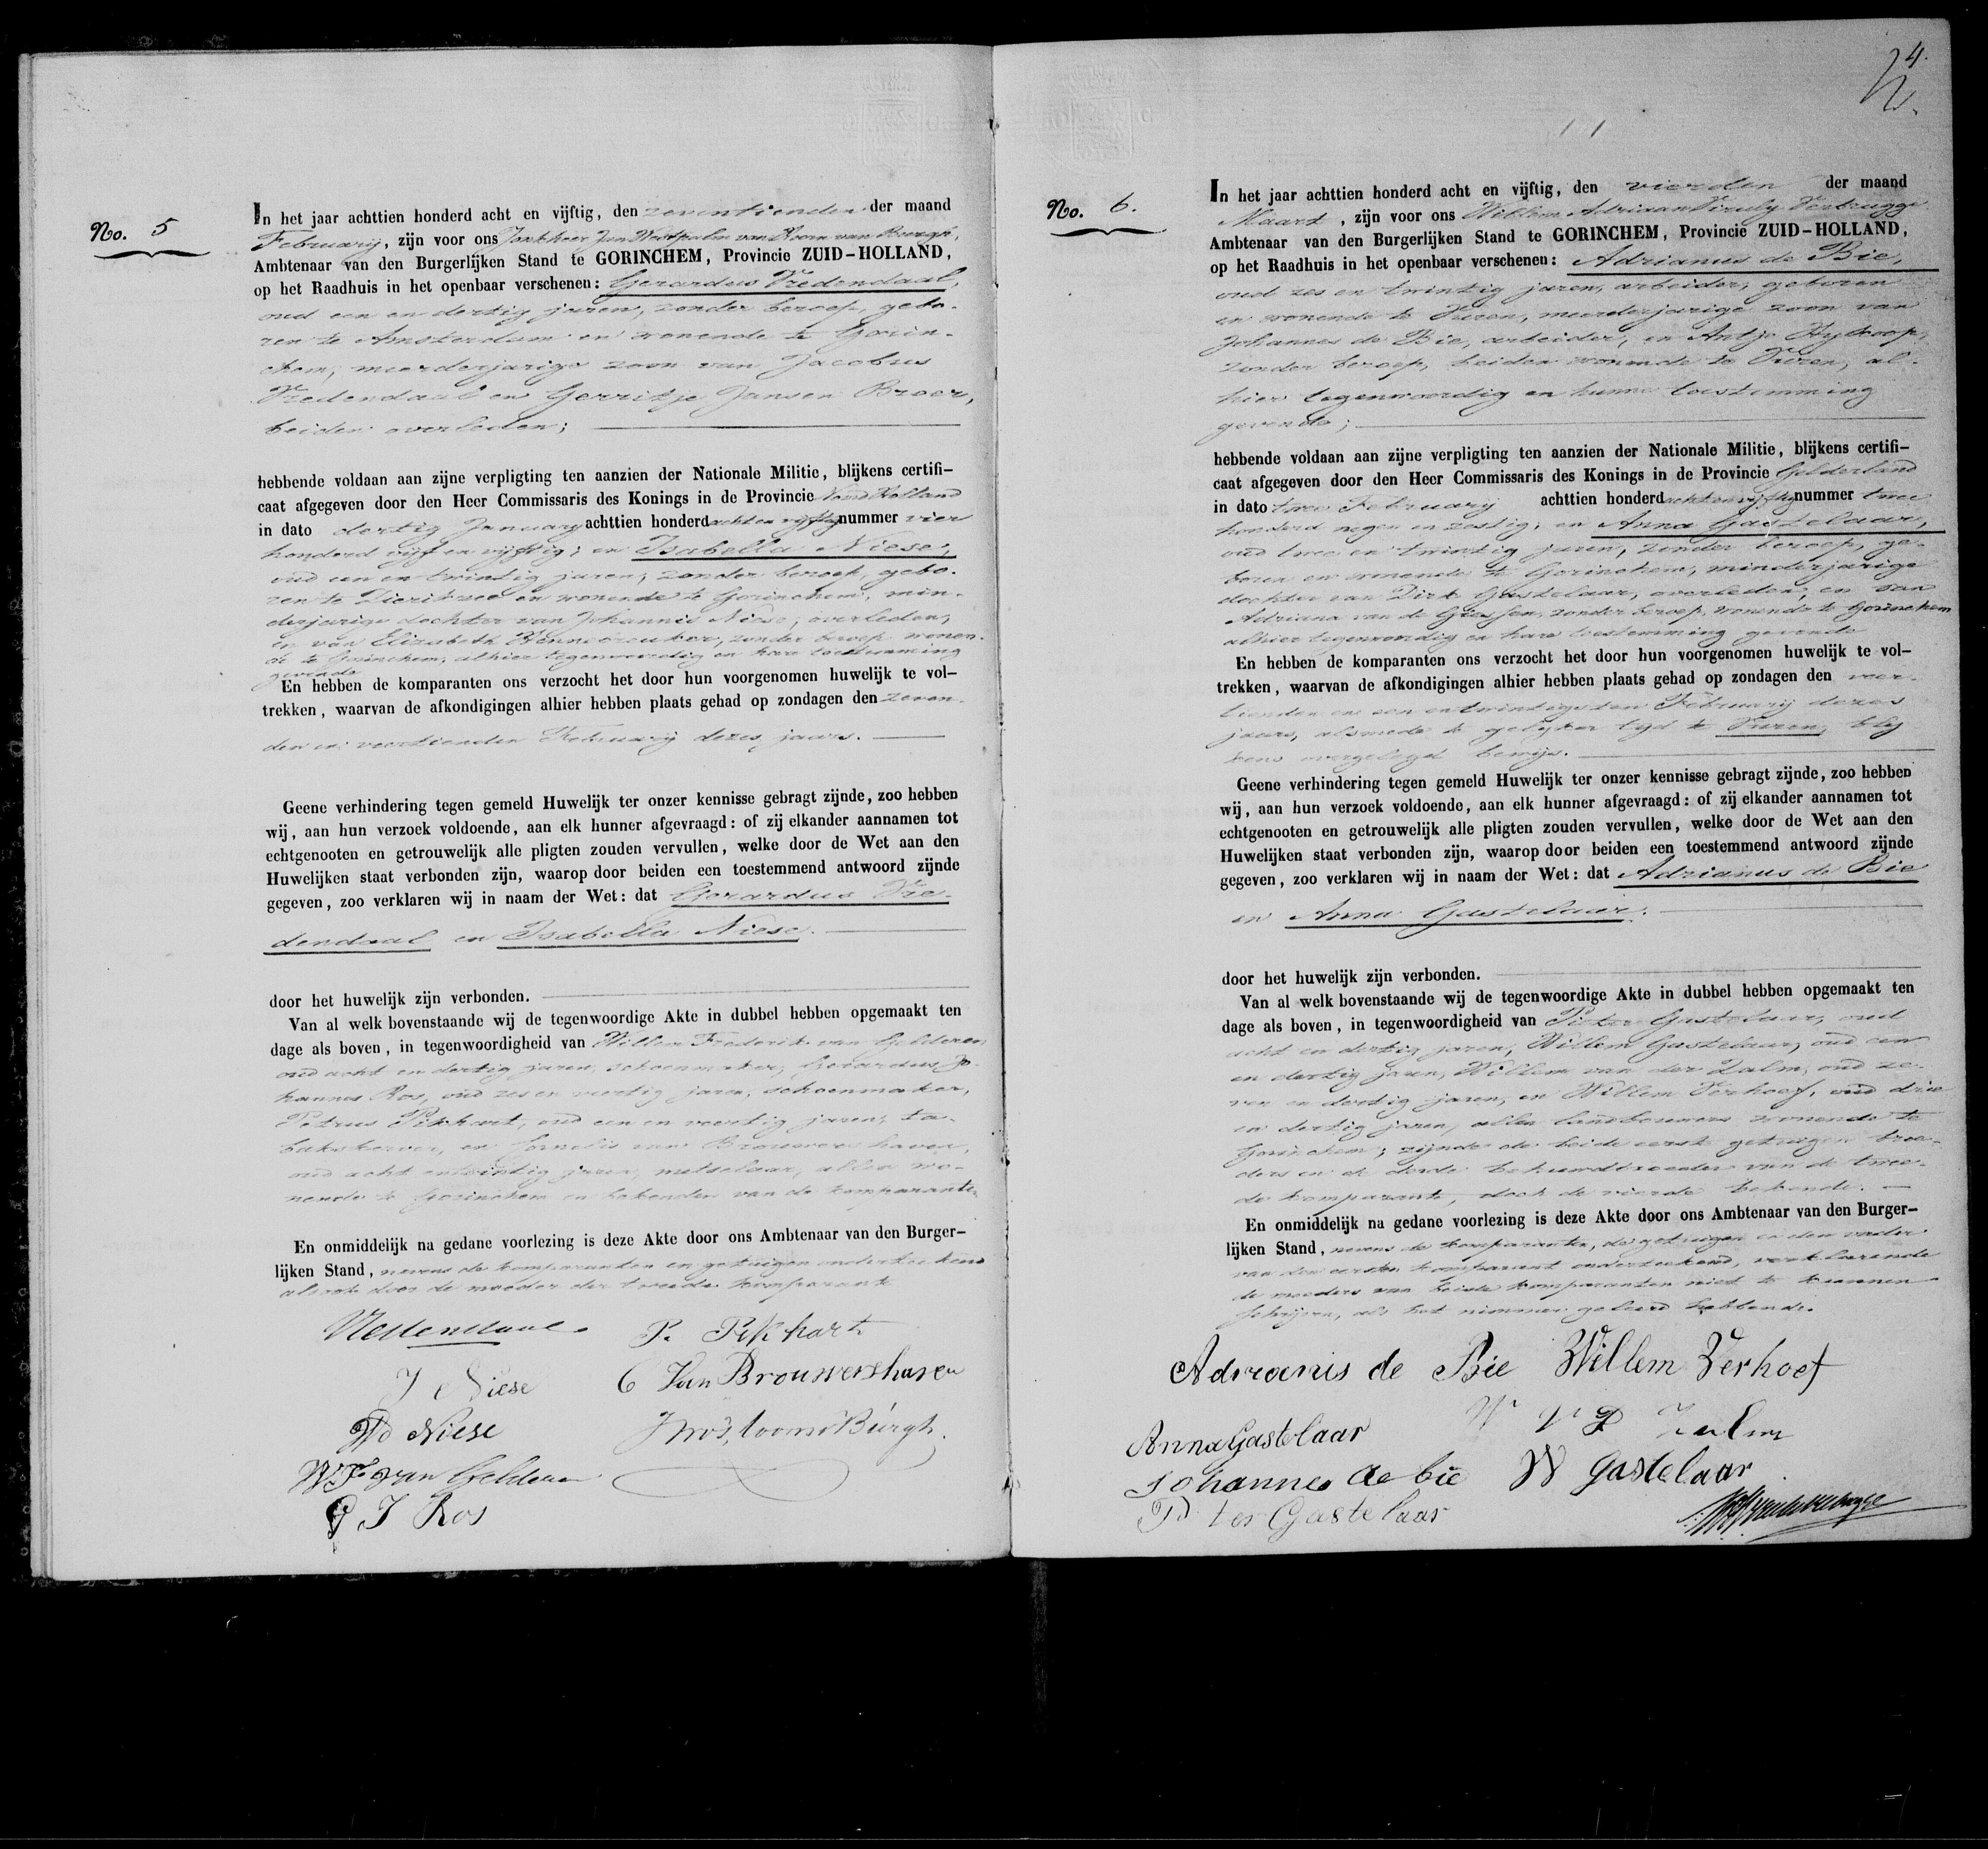 No. 5
In het jaar achttien honderd acht en vijftig, den zeventienden der maand
February, zijn voor ons Jonkheer Jan Westpalm van Hoorn van Burgh,
Ambtenaar van den Burgerlijken Stand te GORINCHEM, Provincie ZUID-HOLLAND,
op het Raadhuis in het openbaar verschenen: Gerardus Vredendaal,
oud een en dertig jaren, zonder beroep, gebo-
ren te Amsterdam en wonende te Gorin-
chem, meerderjarige zoon van Jacobus
Vredendaal en Gerritje Jansen Broer,
beiden overleden;
hebbende voldaan aan zijne verpligting ten aanzien der Nationale Militie, blijkens certifi-
caat afgegeven door den Heer Commissaris des Konings in de Provincie Noord Holland
in dato dertig January achttien honderd acht en vijftig nummer vier
honderd vijf en vijftig; en Isabella Niese,
oud een en twintig jaren, zonder beroep, gebo-
ren te Zierikzee en wonende te Gorinchem, min-
derjarige dochter van Johannis Niese, overleden,
en van Elizabeth, zonder beroep wonen-
de te Gorinchem, alhier tegenwoordig en hare toestemming
gevende
En hebben de komparanten ons verzocht het door hun voorgenomen huwelijk te vol-
trekken, waarvan de afkondigingen alhier hebben plaats gehad op zondagen den zeven-
den en veertienden February dezes jaars.
Geene verhindering tegen gemeld Huwelijk ter onzer kennisse gebragt zijnde, zoo hebben
wij, aan hun verzoek voldoende, aan elk hunner afgevraagd: of zij elkander aannamen tot
echtgenooten en getrouwelijk alle pligten zouden vervullen, welke door de Wet aan den
Huwelijken staat verbonden zijn, waarop door beiden een toestemmend antwoord zijnde
gegeven, zoo verklaren wij in naam der Wet: dat Gerardus Vre-
dendaal en Isabella Niese.
door het huwelijk zijn verbonden.
Van al welk bovenstaande wij de tegenwoordige Akte in dubbel hebben opgemaakt ten
dage als boven, in tegenwoordigheid van Willem Frederik van Gelderen,
oud acht en dertig jaren, schoenmaker, Gerardus Jo-
hannes Ros, oud zes en veertig jaren, schoenmaker,
Petrus Pikhart, oud een en veertig jaren, ta-
bakskerver, en Cornelis van Brouwershaven,
oud acht en twintig jaren, metselaar, allen wo-
nende te Gorinchem en bekenden van de komparanten
En onmiddelijk na gedane voorlezing is deze Akte door ons Ambtenaar van den Burger-
lijken Stand, nevens de komparanten en getuigen onderteekend
alsook door de moeder der tweede komparante
Vredendaal P. Pikhart
I Niese C Van Brouwershaven
Wd Niese
WF van Gelderen
G J Ros
4.
No. 6.
In het jaar achttien honderd acht en vijftig, den vierden der maand
Maart, zijn voor ons Willem Adriaan Viruly Verbrugge
Ambtenaar van den Burgerlijken Stand te GORINCHEM, Provincie ZUID-HOLLAND,
op het Raadhuis in het openbaar verschenen: Adrianus de Bie,
oud zes en twintig jaren, arbeider, geboren
en wonende te Vuren, meerderjarige zoon van
Johannes de Bie, arbeider, en Antje Hijkoop,
zonder beroep, beiden wonende te Vuren, al-
hier tegenwoordig en hunne toestemming
gevende;
hebbende voldaan aan zijne verpligting ten aanzien der Nationale Militie, blijkens certifi-
caat afgegeven door den Heer Commissaris des Konings in de Provincie Gelderland
in dato twee February achttien honderd acht en vijftig nummer twee
honderd negen en zestig; en Anna Gastelaar,
oud twee en twintig jaren, zonder beroep, ge-
boren en wonende te Gorinchem, minderjarige
dochter van Dirk Gastelaar, overleden, en van
Adriana van de Giessen, zonder beroep, wonende te Gorinchem
alhier tegenwoordig en hare toestemming gevende
En hebben de komparanten ons verzocht het door hun voorgenomen huwelijk te vol-
trekken, waarvan de afkondigingen alhier hebben plaats gehad op zondagen den veer-
tienden en een en twintigsten February dezes
jaars, alsmede te gelijker tijd te Vuren, blij
kens overgelegd bewijs.
Geene verhindering tegen gemeld Huwelijk ter onzer kennisse gebragt zijnde, zoo hebben
wij, aan hun verzoek voldoende, aan elk hunner afgevraagd: of zij elkander aannamen tot
echtgenooten en getrouwelijk alle pligten zouden vervullen, welke door de Wet aan den
Huwelijken staat verbonden zijn, waarop door beiden een toestemmend antwoord zijnde
gegeven, zoo verklaren wij in naam der Wet: dat Adrianus de Bie
en Anna Gastelaar.
door het huwelijk zijn verbonden.
Van al welk bovenstaande wij de tegenwoordige Akte in dubbel hebben opgemaakt ten
dage als boven, in tegenwoordigheid van Pieter Gastelaar, oud
acht en dertig jaren, Willem Gastelaar, oud een
en dertig jaren, Willem van der Zalm, oud ze-
ven en dertig jaren, en Willem Verhoef, oud drie
en dertig jaren, allen landbouwers wonende te
Gorinchem; zijnde de beide eerste getuigen broe-
ders en de derde behuwdbroeder van de twee-
de komparante, doch de vierde bekende.
En onmiddelijk na gedane voorlezing is deze Akte door ons Ambtenaar van den Burger-
lijken Stand, nevens de komparanten, de getuigen en den vader
van den eersten komparant onderteekend, verklarende
de moeders van beide komparanten niet te kunnen
schrijven, als het nimmer geleerd hebbende.
Adrranis de Bie Willem Verhoef
Anna Gastelaar W V D Zalm
Johannes de bie W Gastelaar
P ter Gastelaar